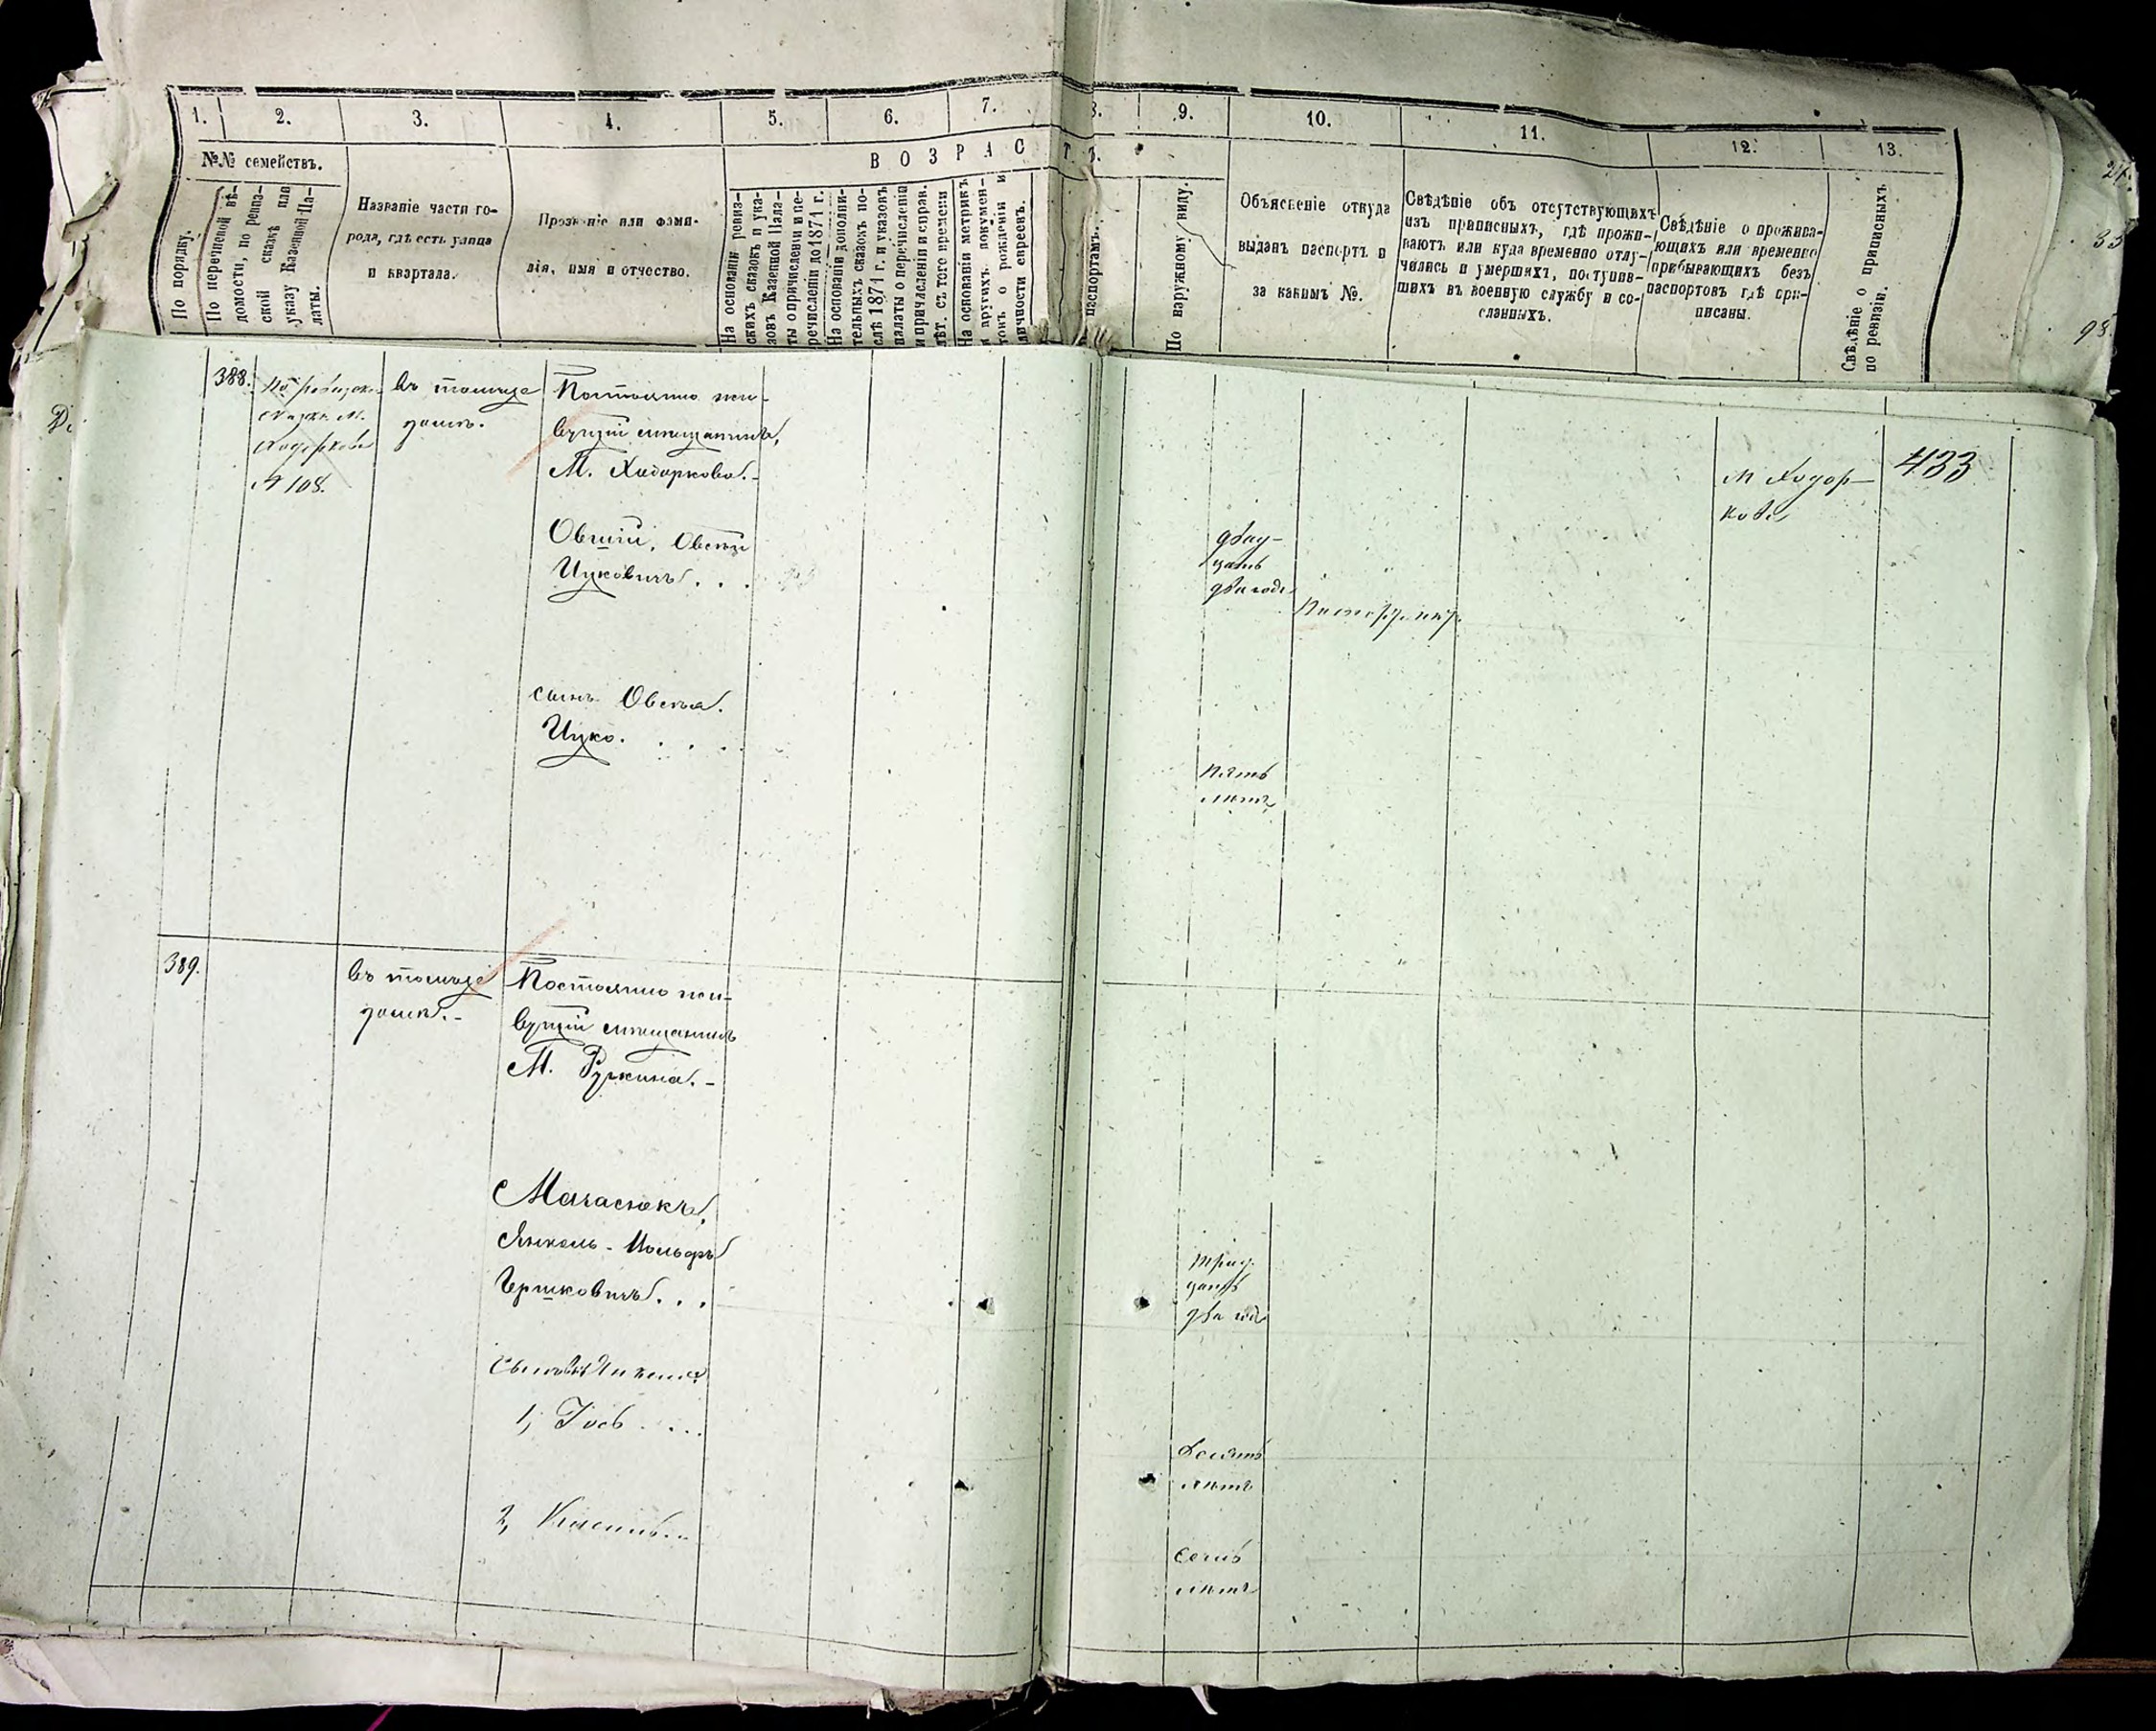 1.
2.
3.
4.
5.
6.
7.
8.
9.
10.
11.
12.
13.
№№ семействъ.
ВОЗРАСТЪ.
По порядку.
По перечневой вѣ-
домости, по ревиз-
ской сказкѣ или
указу Казенной Па-
латы.
Названіе части го-
рода, гдѣ есть улица
и квартала.
Прозваніе или фами-
лія, имя и отчество.
На основаніи ревиз-
скихъ сказокъ и ука-
зовъ Казенной Пала-
ты о причисленіи и пе-
речисленіи до 1871 г.
На основаніи дополни-
тельныхъ сказокъ по-
слѣ 1871 г. и указовъ
палаты о перечисленіи
и причисленіи и справ.
лѣт. съ того времени
На основаніи метрикъ
и другихъ докумен-
товъ о рожденіи и
личности евреевъ.
паспортамъ.
По наружному виду.
Объясненіе откуда
выданъ паспортъ и
за какимъ №.
Свѣдѣніе объ отсутствующихъ
изъ приписныхъ, гдѣ прожи-
ваютъ или куда временно отлу-
чились и умершихъ, поступив-
шихъ въ военную службу и со-
сланныхъ.
Свѣдѣніе о прожива-
ющихъ или временно
прибывающихъ безъ
паспортовъ гдѣ при-
писаны.
Свѣдѣніе о приписныхъ
по ревизіи.
388.
По ревизск.
сказк. М.
Ходоркова
№ 108.
въ томъже
домѣ.
Постоянно жи-
вущій мѣщанинъ,
М. Ходоркова.
Овсій
Ицковичъ . . .
двад-
цать
два года
М Ходор-
кова
433
сынъ Овсѣя.
Ицко. . . .
пять
лѣтъ
389.
въ томъже
домѣ. -
Постоянно жи-
вущій мѣщанинъ
М. Ружина. -
Янкель-
Гершковичъ . . .
трид-
цать
два года
Сыновья Янкеля
1, Іось . . . .
десять
лѣтъ
2,
семь
лѣтъ